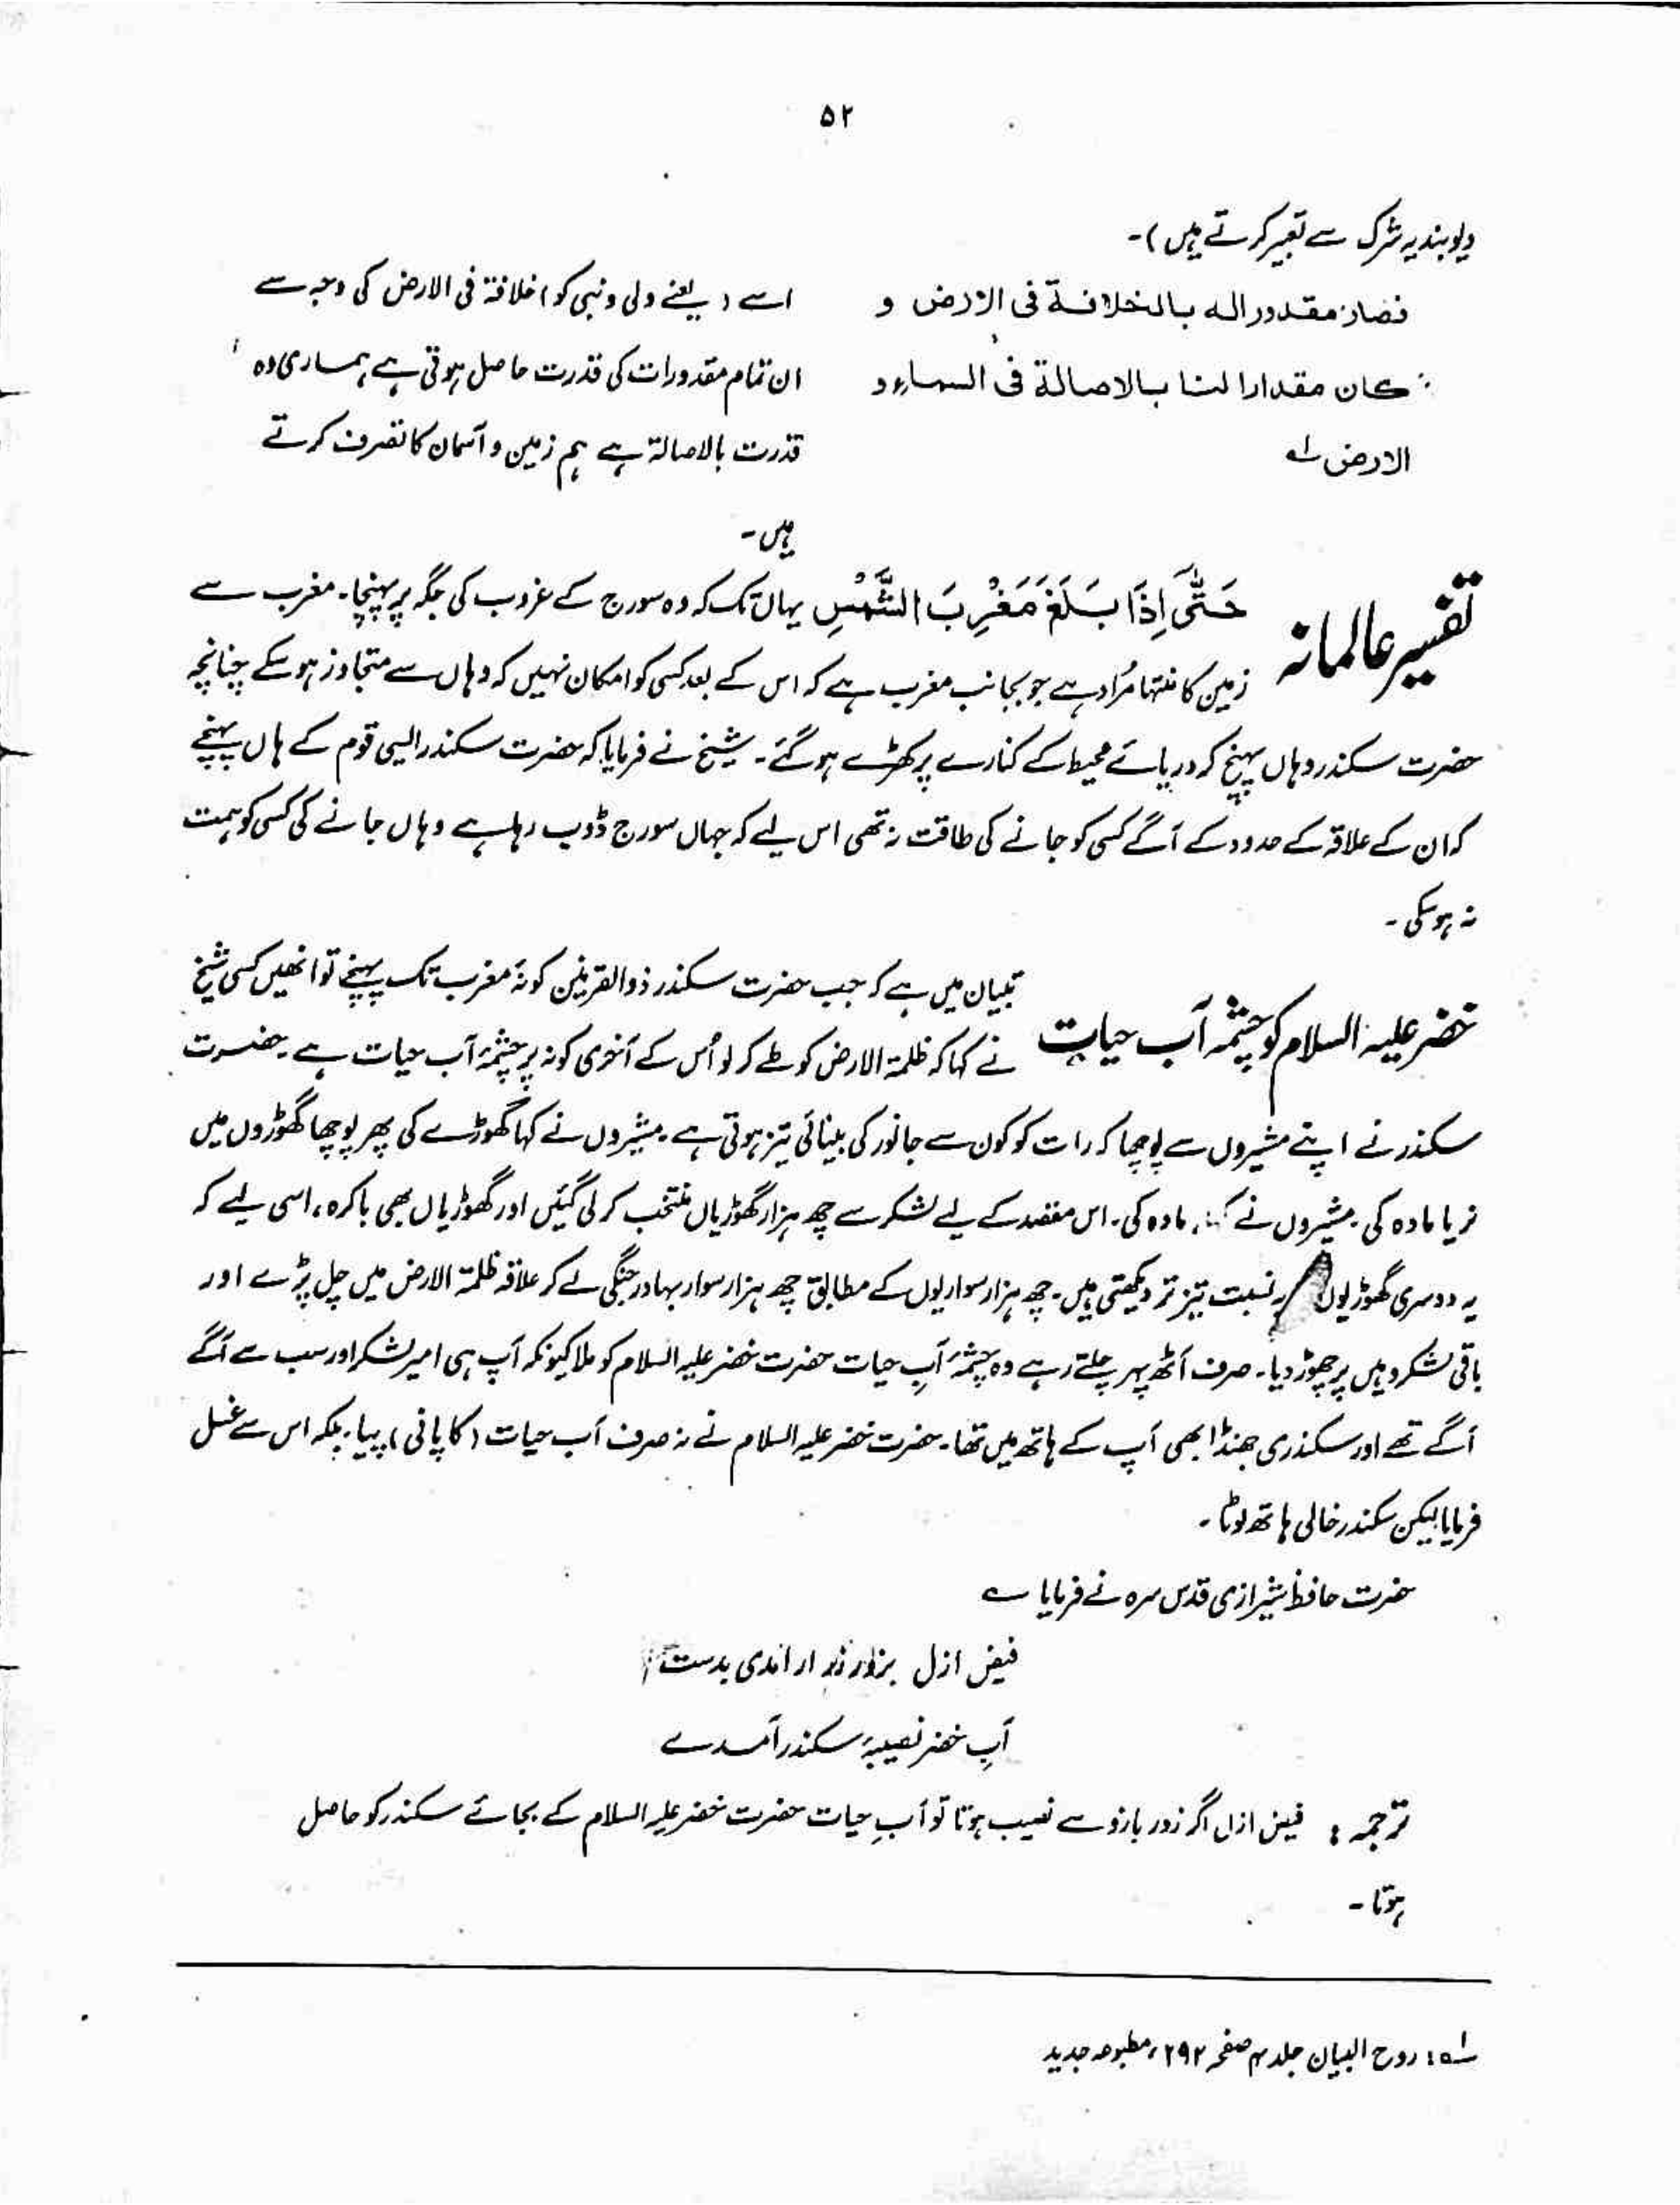 ۵۲
دیوبندیہ شرک سے تعبیر کرتے ہیں)۔
فصار مقدور الہ بالخلافۃ فی الارض و
کان مقدارا لنا بالاصالۃ فی السماء و
الارض لہ
اسے (یعنے ولی و نبی کو) خلافۃ فی الارض کی وجہ سے
ان تمام مقدورات کی قدرت حاصل ہوتی ہے ہماری وہ
قدرت بالاصالۃ ہے ہم زمین و آسمان کا تصرف کرتے
ہیں۔
تفسیر عالمانہ
حَتّٰۤی اِذَا بَلَغَ مَغْرِبَ الشَّمْسِ یہاں تک کہ وہ سورج کے غروب کی جگہ پر پہنچا۔ مغرب سے
زمین کا منتہا مُراد ہے جو بجانب مغرب ہے کہ اس کے بعد کسی کو امکان نہیں کہ وہاں سے متجاوز ہو سکے چنانچہ
حضرت سکندر وہاں پہنچ کر دریائے محیط کے کنارے پر کھڑے ہو گئے۔ شیخ نے فرمایا کہ حضرت سکندر ایسی قوم کے ہاں پہنچے
کہ ان کے علاقہ کے حدود کے آگے کسی کو جانے کی طاقت نہ تھی اس لیے کہ جہاں سورج ڈوب رہا ہے وہاں جانے کی کسی کو ہمت
نہ ہو سکی۔
خضر علیہ السلام کو چشمہ آب حیات
تبیان میں ہے کہ جب حضرت سکندر ذوالقرنین کونۂ مغرب تک پہنچے تو انھیں کسی شیخ
نے کہا کہ ظلمۃ الارض کو طے کر لو اُس کے آخری کونہ پر چشمۂ آب حیات ہے۔ حضرت
سکندر نے اپنے مشیروں سے پوچھا کہ رات کو کون سے جانور کی بینائی تیز ہوتی ہے۔ مشیروں نے کہا گھوڑے کی پھر پوچھا گھوڑوں میں
نر یا مادہ کی۔ مشیروں نے کہا، مادہ کی۔ اس مقصد کے لیے لشکر سے چھ ہزار گھوڑیاں منتخب کر لی گئیں اور گھوڑیاں بھی باکرہ، اسی لیے کہ
یہ دوسری گھوڑیوں نسبت تیز تر دیکھتی ہیں۔ چھ ہزار سواریوں کے مطابق چھ ہزار سوار بہادر جنگی لے کر علاقہ ظلمۃ الارض میں چل پڑے اور
باقی لشکر وہیں پر چھوڑ دیا۔ صرف آٹھ پہر چلتے رہے وہ چشمۂ آبِ حیات حضرت خضر علیہ السلام کو ملا کیونکہ آپ ہی امیر لشکر اور سب سے آگے
آگے تھے اور سکندری جھنڈا بھی آپ کے ہاتھ میں تھا۔ حضرت خضر علیہ السلام نے نہ صرف آب حیات (کا پانی) پیا۔ بلکہ اس سے غسل
فرمایا لیکن سکندر خالی ہاتھ لوٹا۔
حضرت حافظ شیرازی قدس سرہ نے فرمایا ؎
فیض ازل بزور زر ار آمدی بدست
آبِ خضر نصیبۂ سکندر آمدے
ترجمہ : فیض ازل اگر زور بازو سے نصیب ہوتا تو آبِ حیات حضرت خضر علیہ السلام کے بجائے سکندر کو حاصل
ہوتا۔
لہ : روح البیان جلد ۳ صفحہ ۲۹۲، مطبوعہ جدید